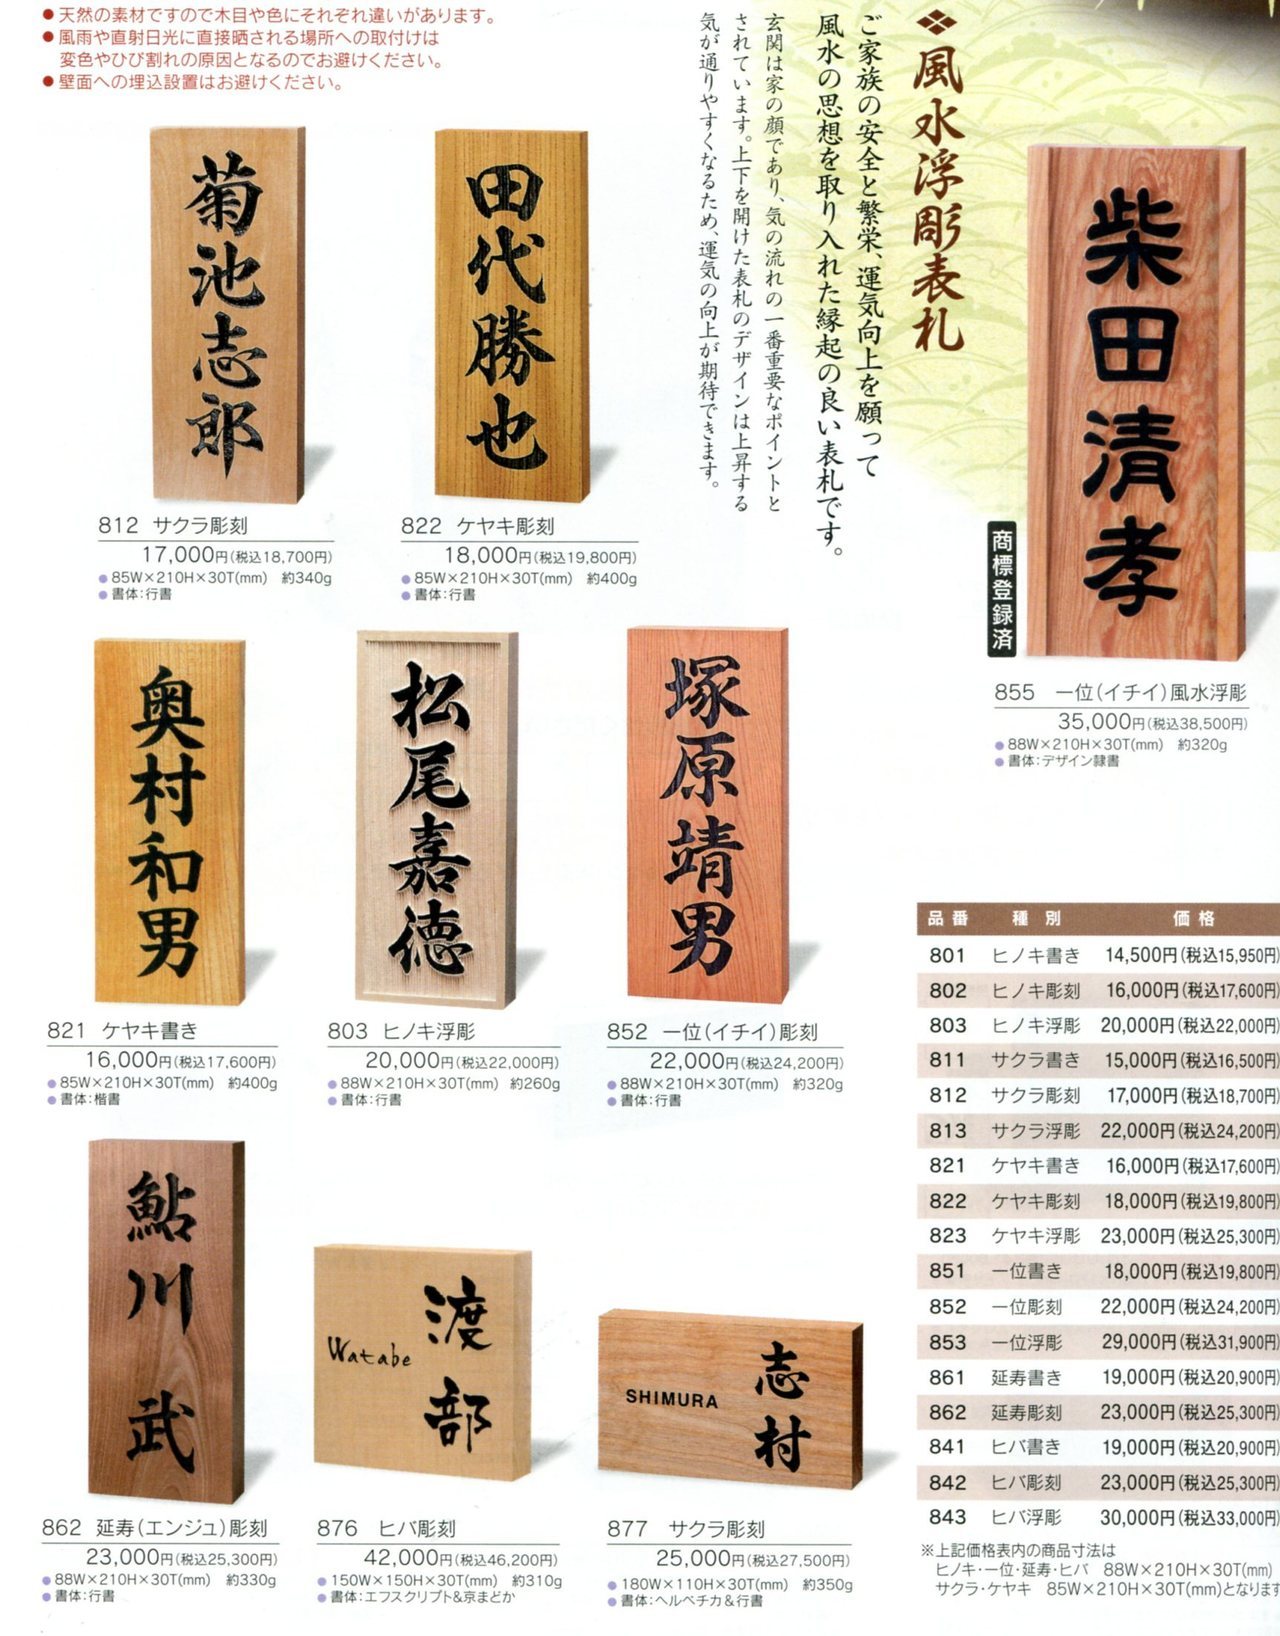 ●天然の素材ですので木目や色にそれぞれ違いがあります。
●風雨や直射日光に直接晒される場所への取付けは
変色やひび割れの原因となるのでお避けください。
●壁面への埋込設置はお避けください。
❖風水浮彫表札
ご家族の安全と繁栄、運気向上を願って
風水の思想を取り入れた縁起の良い表札です。
玄関は家の顔であり、気の流れの一番重要なポイントと
されています。上下を開けた表札のデザインは上昇する
気が通りやすくなるため、運気の向上が期待できます。
菊池志郎
812 サクラ彫刻
17,000円(税込18,700円)
●85W×210H×30T(mm) 約340g
●書体:行書
田代勝也
822 ケヤキ彫刻
18,000円(税込19,800円)
●85W×210H×30T(mm) 約400g
●書体:行書
柴田清孝
商標登録済
855 一位(イチイ)風水浮彫
35,000円(税込38,500円)
●88W×210H×30T(mm) 約320g
●書体:デザイン隷書
奥村和男
821 ケヤキ書き
16,000円(税込17,600円)
●85W×210H×30T(mm) 約400g
●書体:楷書
松尾嘉徳
803 ヒノキ浮彫
20,000円(税込22,000円)
●88W×210H×30T(mm) 約260g
●書体:行書
塚原靖男
852 一位(イチイ)彫刻
22,000円(税込24,200円)
●88W×210H×30T(mm) 約320g
●書体:行書
鮎川武
862 延寿(エンジュ)彫刻
23,000円(税込25,300円)
●88W×210H×30T(mm) 約330g
●書体:行書
渡部
Watabe
876 ヒバ彫刻
42,000円(税込46,200円)
●150W×150H×30T(mm) 約310g
●書体:エフスクリプト&京まどか
志村
SHIMURA
877 サクラ彫刻
25,000円(税込27,500円)
●180W×110H×30T(mm) 約350g
●書体:ヘルベチカ&行書
品番 種別 価格
801 ヒノキ書き 14,500円(税込15,950円)
802 ヒノキ彫刻 16,000円(税込17,600円)
803 ヒノキ浮彫 20,000円(税込22,000円)
811 サクラ書き 15,000円(税込16,500円)
812 サクラ彫刻 17,000円(税込18,700円)
813 サクラ浮彫 22,000円(税込24,200円)
821 ケヤキ書き 16,000円(税込17,600円)
822 ケヤキ彫刻 18,000円(税込19,800円)
823 ケヤキ浮彫 23,000円(税込25,300円)
851 一位書き 18,000円(税込19,800円)
852 一位彫刻 22,000円(税込24,200円)
853 一位浮彫 29,000円(税込31,900円)
861 延寿書き 19,000円(税込20,900円)
862 延寿彫刻 23,000円(税込25,300円)
841 ヒバ書き 19,000円(税込20,900円)
842 ヒバ彫刻 23,000円(税込25,300円)
843 ヒバ浮彫 30,000円(税込33,000円)
※上記価格表内の商品寸法は
ヒノキ・一位・延寿・ヒバ 88W×210H×30T(mm)
サクラ・ケヤキ 85W×210H×30T(mm)となります